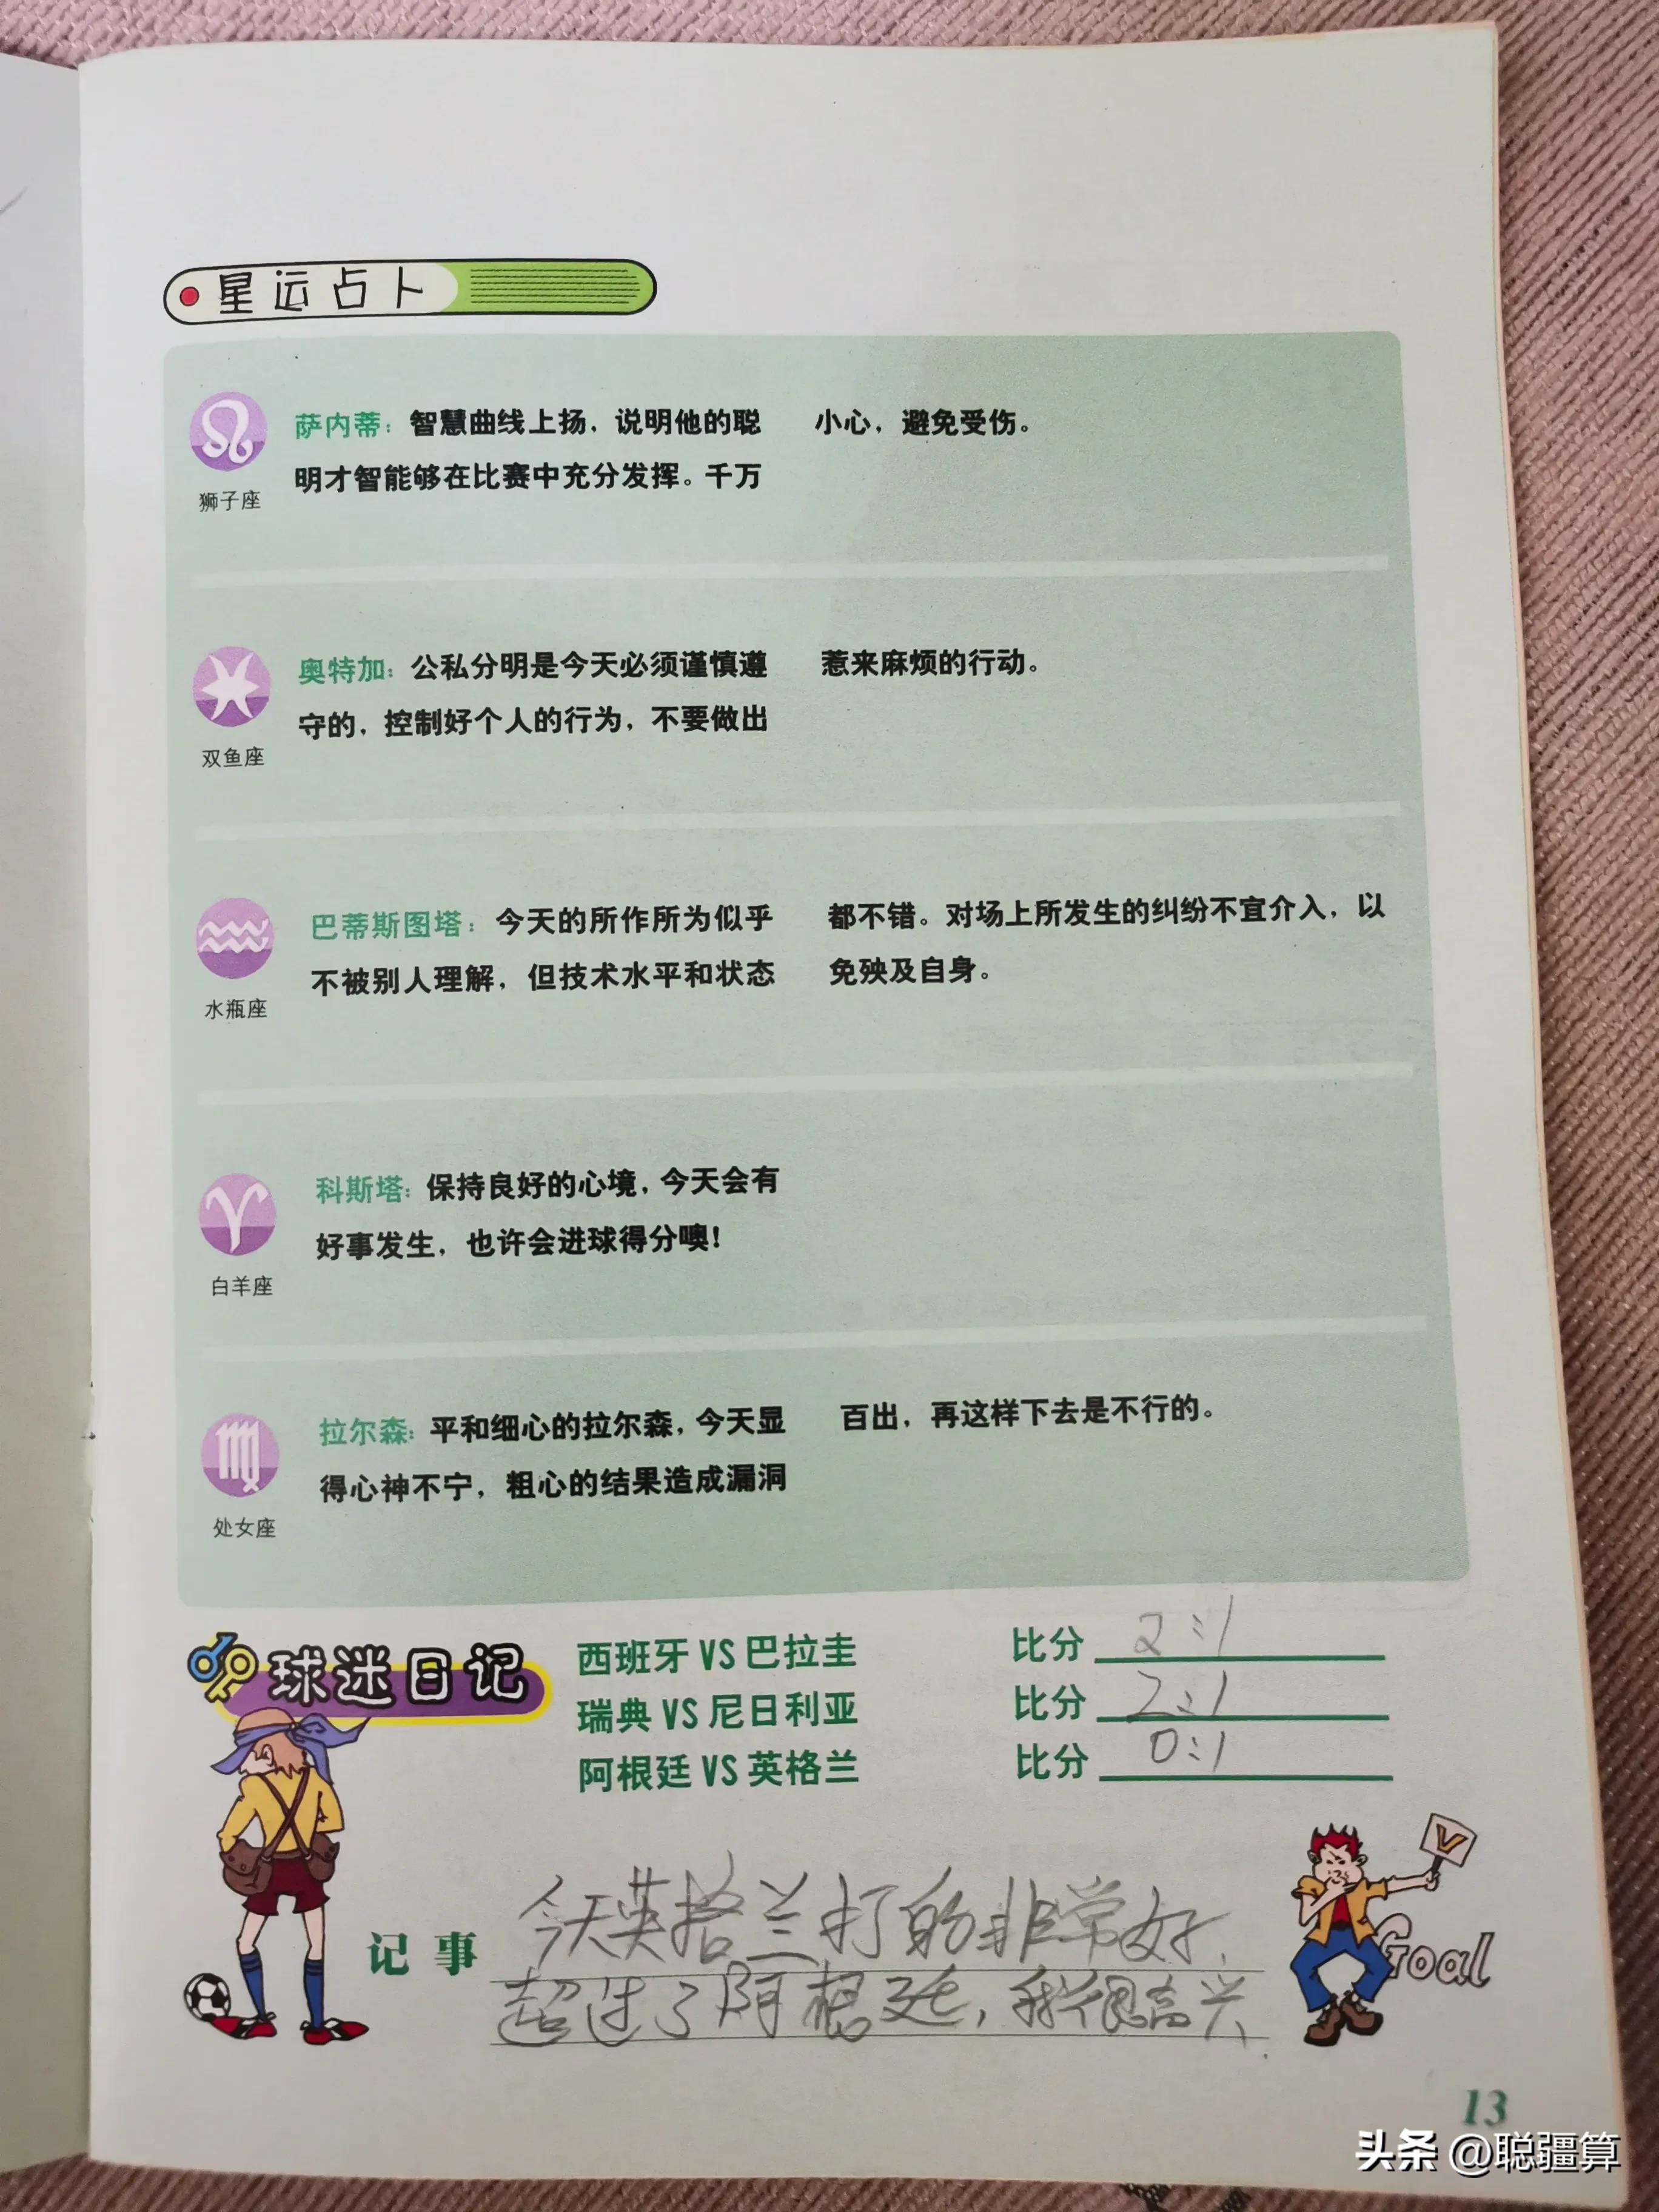 星运占卜
狮子座
萨内蒂：智慧曲线上扬，说明他的聪
明才智能够在比赛中充分发挥。千万
小心，避免受伤。
双鱼座
奥特加：公私分明是今天必须谨慎遵
守的，控制好个人的行为，不要做出
惹来麻烦的行动。
水瓶座
巴蒂斯图塔：今天的所作所为似乎
不被别人理解，但技术水平和状态
都不错。对场上所发生的纠纷不宜介入，以
免殃及自身。
白羊座
科斯塔：保持良好的心境，今天会有
好事发生，也许会进球得分噢！
处女座
拉尔森：平和细心的拉尔森，今天显
得心神不宁，粗心的结果造成漏洞
百出，再这样下去是不行的。
球迷日记
西班牙 VS 巴拉圭 比分 2:1
瑞典 VS 尼日利亚 比分 2:1
阿根廷 VS 英格兰 比分 0:1
记事
今天英格兰打的非常好，
超过了阿根廷，我很高兴.
V
Goal
13
头条 @聪疆算